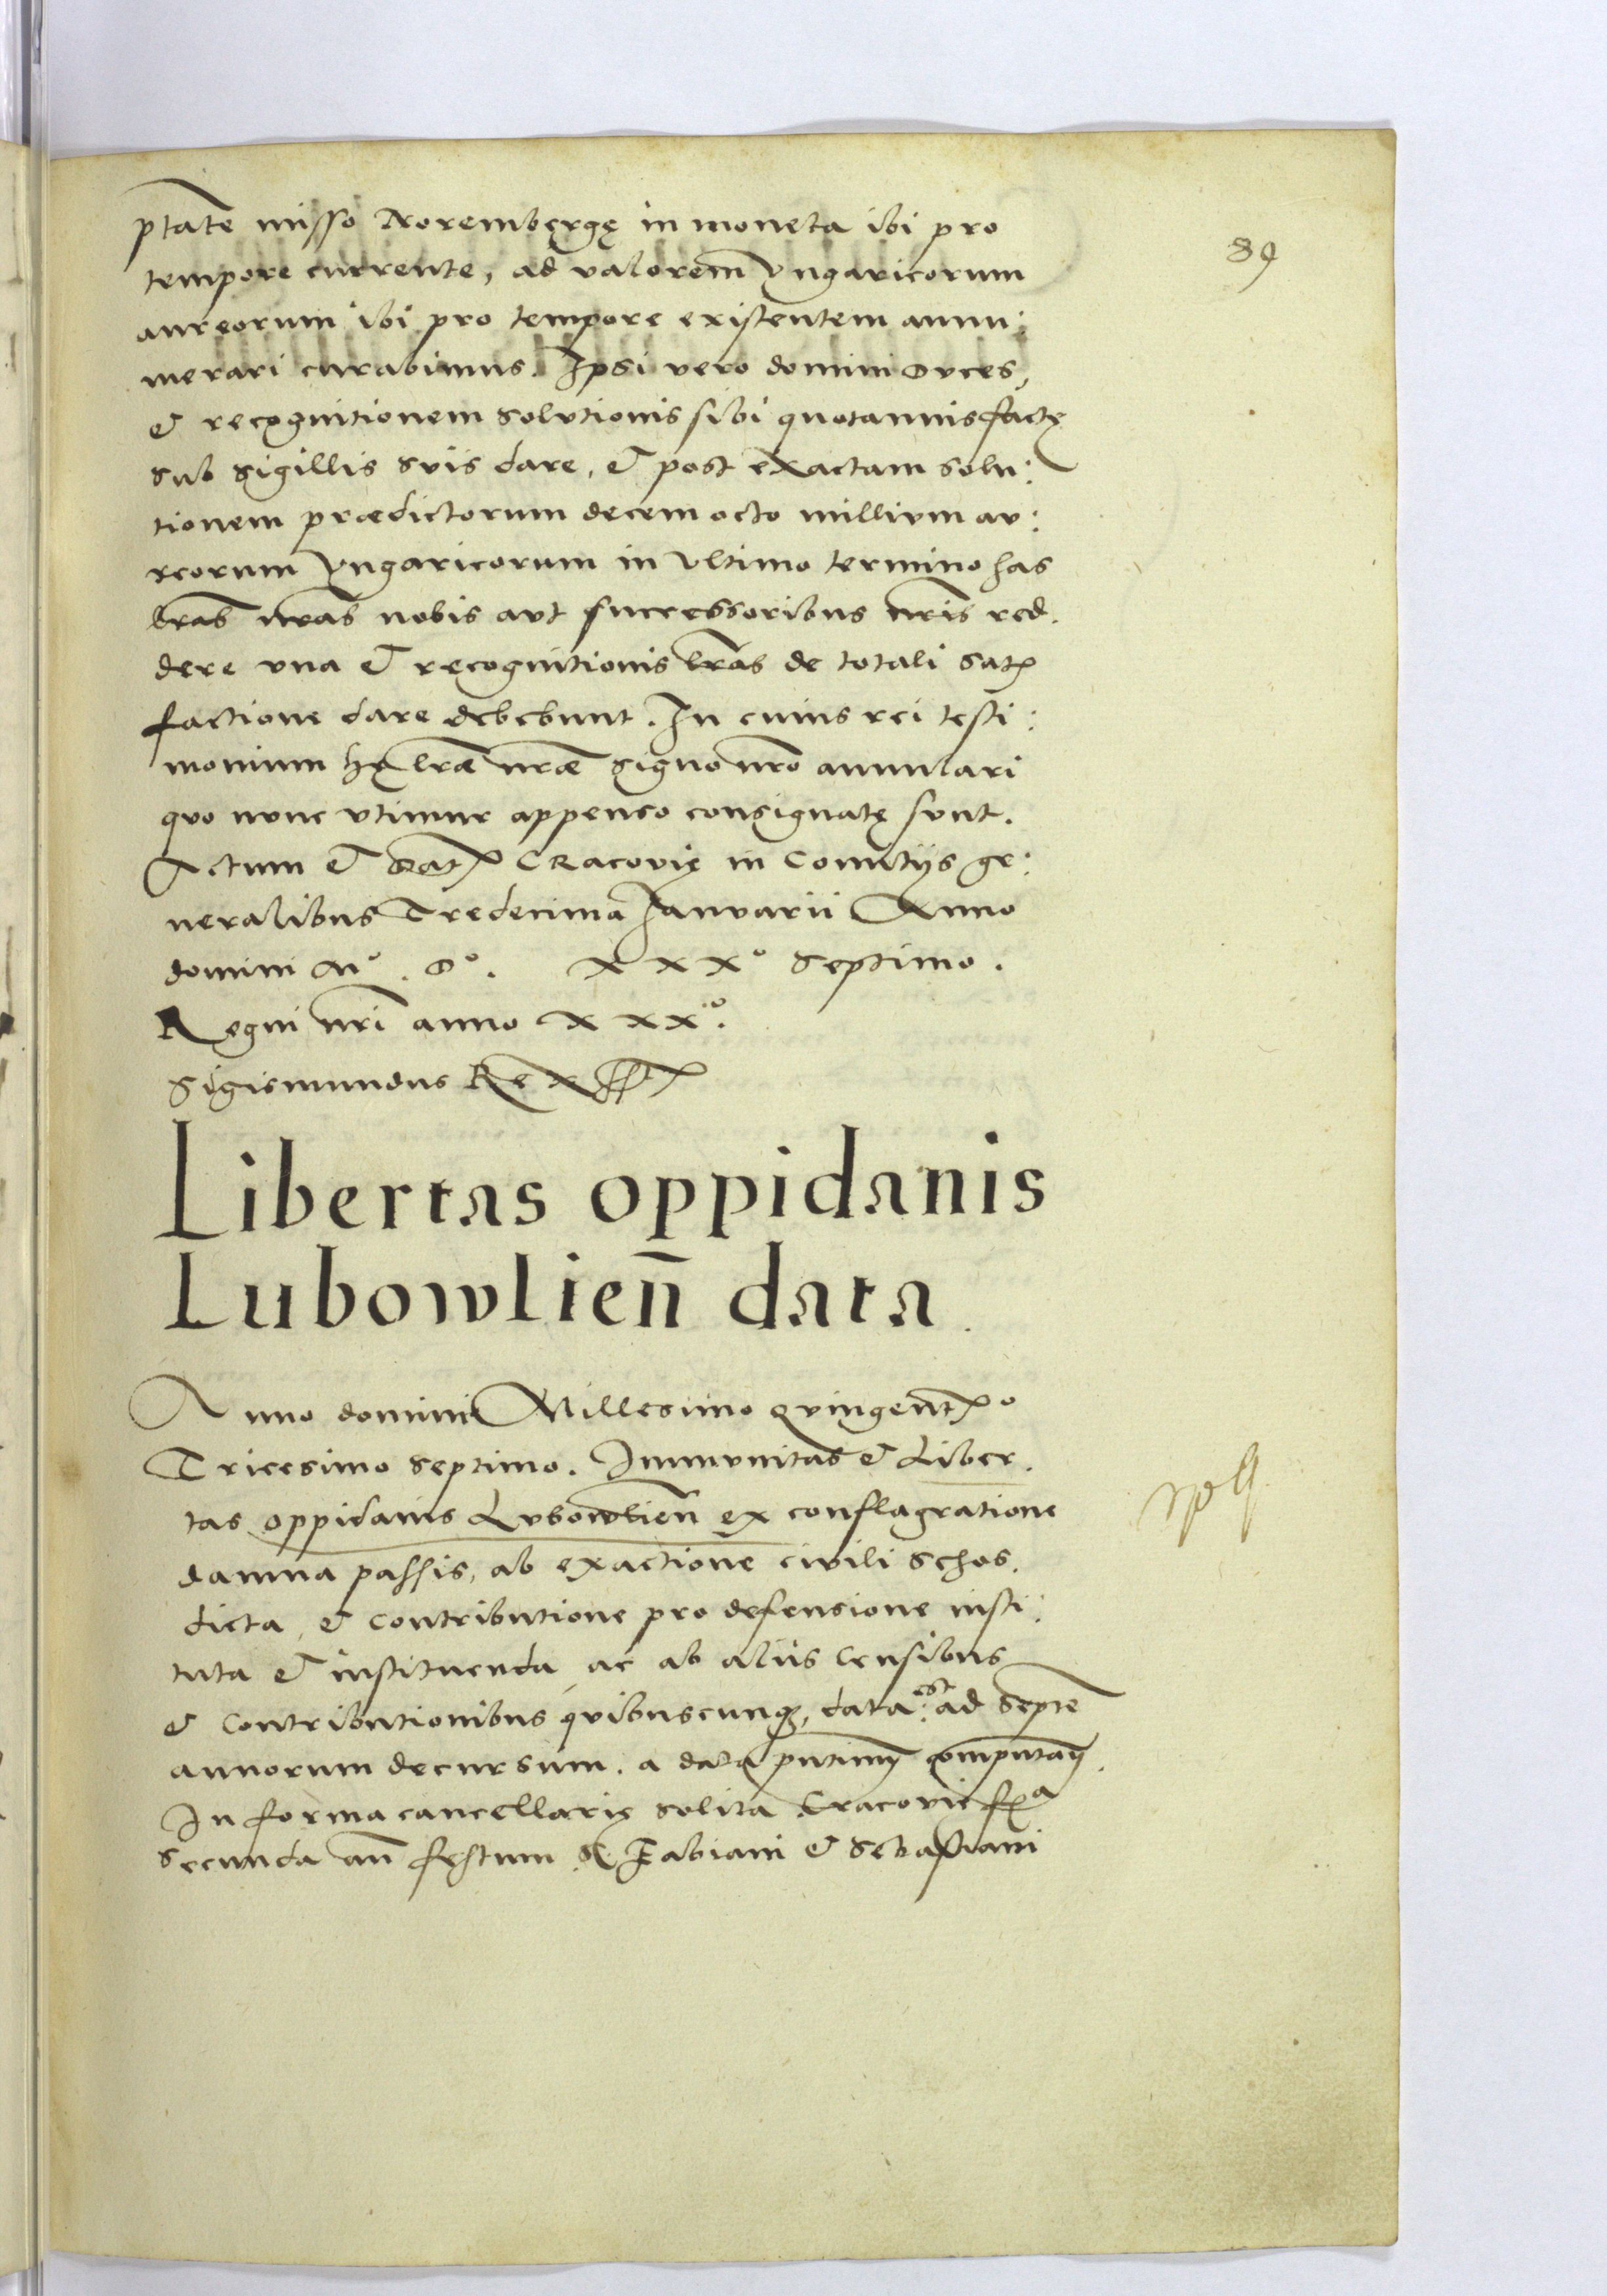 89
ptatē misso Norembergę in moneta ibi pro
tempore currente, ad valorem̄ Vngaricorum
aureorum ibi pro tempore existentem annu:
merari curabimus. Ipsi vero domini Duces,
& recognitionem solutionis sibi quotannis factę
sub sigillis suis dare, & post exactam solu:
tionem prædictorum decem octo millium au:
reorum Vngaricorum in ultimo termino has
lr̄as nr̄as nobis aut successoribus nr̄is red.
dere una & recognitionis lr̄as de totali satꝭ
factione dare debebunt. In cuius rei testi:
monium hę lr̄æ nr̄æ signo nr̄o annulari
quo nunc utimur appenso consignatę sunt.
Actum & Datꝭ CRacovię in Comitijs ge:
neralibus Tredecima Januarii Anno
domini Mº. Dº. XXXº septimo.
Regni nr̄i anno XXXº.
Sigismundus Rex sstꝭ
Libertas oppidanis
Lubowlien̄ data
Anno domini Millesimo quingentꝭº
Tricesimo septimo. Immunitas & Liber.
tas oppidanis Lubowlien̄ ex conflagratione
damna passis, ab exactione civili schos.
dicta, & contributione pro defensione insti:
tuta & instituenda, ac ab aliis Censibus
& Contributionibus quibuscunqȝ, data est ad septē
annorum decursum. a data pntium computan̄.
In forma cancellarię solita. Cracovię fꝭª
secunda an̄ festum S. Fabiani & Sebastiani